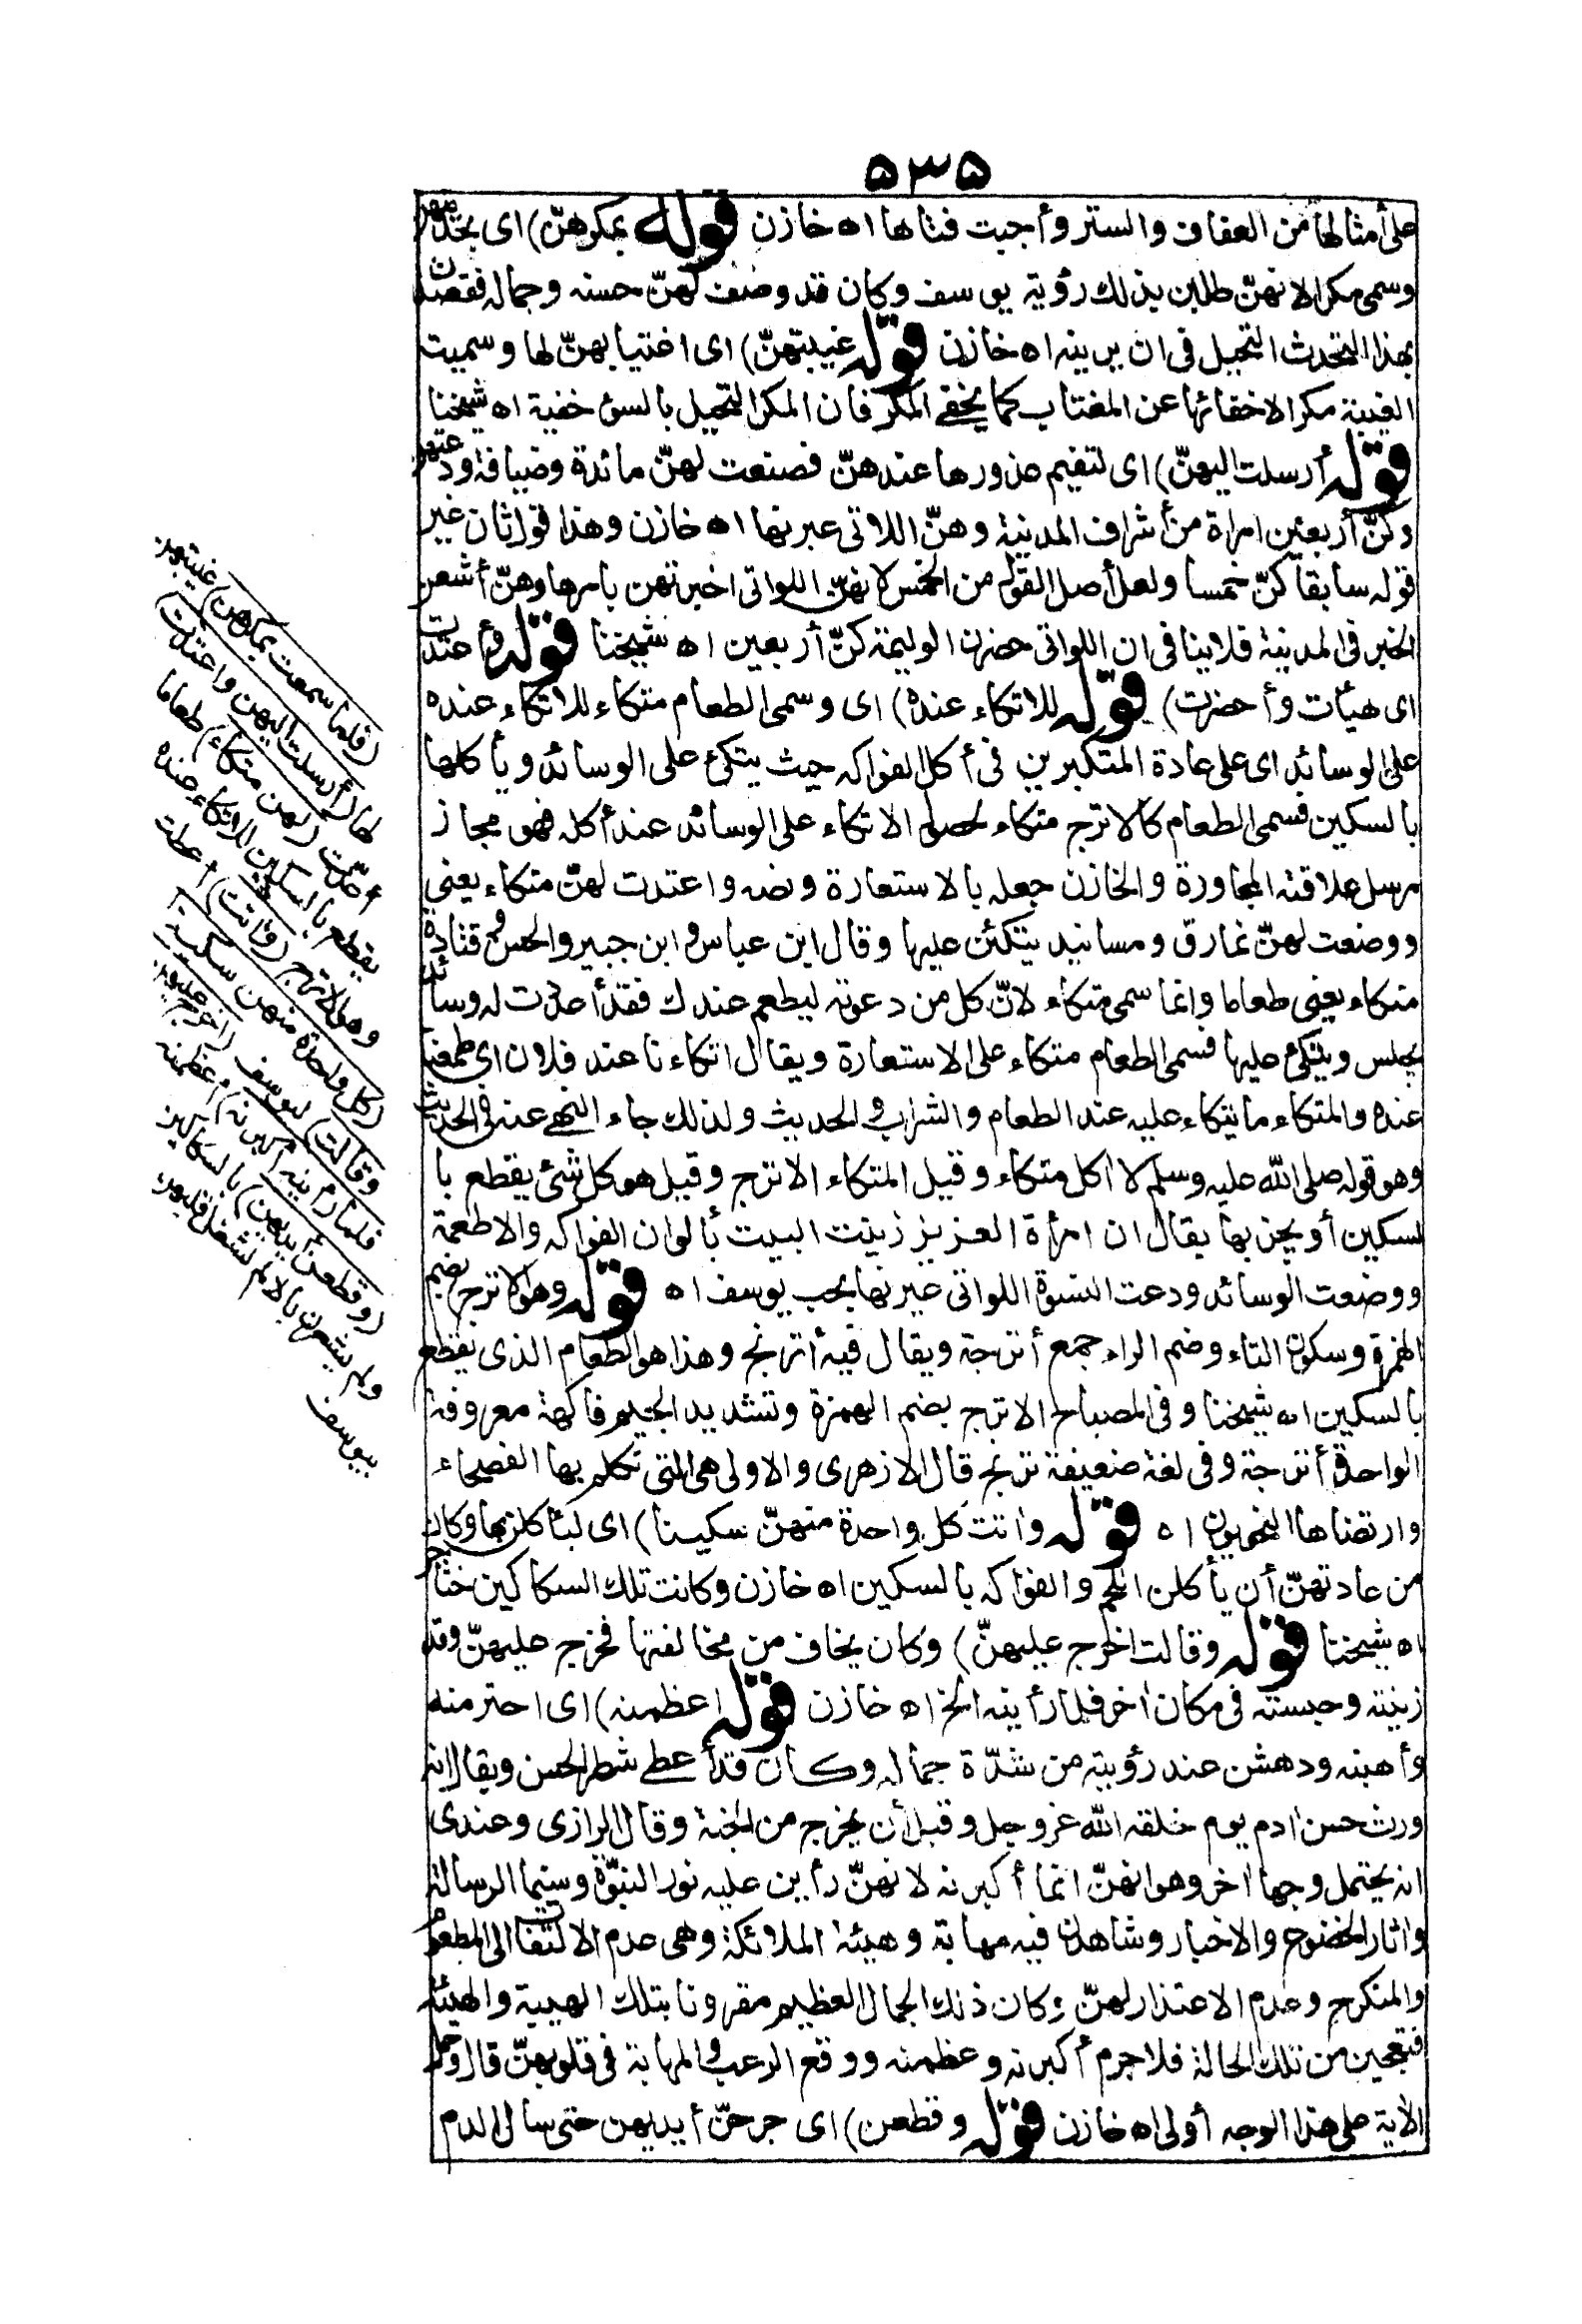 ٥٣٥
على أمثالها من العفاف والستر وأحبت فتاها اه خازن قوله بمكرهنّ) اى بحديثهن
وسمى مكرا لانهنّ طلبن بذلك رؤية يوسف وكان قد وصف لهنّ حسنه وجماله فقصدن
بهذا التحدث التحيل فى ان يرينه اه خازن قوله غيبتهنّ) اى اغتيابهنّ لها وسميت
الغيبة مكرا لاخفائها عن المغتاب كما يخفى المكر فان المكر التحيل بالسئ خفية اه شيخنا
قوله أرسلت اليهنّ) اى لتقيم عذورها عندهنّ فصنعت لهنّ مائدة وضيافة ودعتهن
وكنّ أربعين امراة من أشراف المدينة وهنّ اللاتى عيرنها اه خازن وهذا قول ثان غير
قوله سابقا كنّ خمسا ولعل أصل القول من الخمس لانهنّ اللواتى اخبرتهن بامرها وهنّ أشعن
الخبر فى المدينة فلاينافى ان اللواتى حضرن الوليمة كنّ أربعين اه شيخنا قوله وأعتدت
اى هيأت وأحضرت) قوله للاتكاء عنده) اى وسمى الطعام متكاء للاتكاء عنده
على الوسائد اى على عادة المتكبرين فى أكل الفواكه حيث يتكئ على الوسائد ويأكلها
بالسكين فسمى الطعام كالاترج متكاء لحصول الاتكاء على الوسائد عند أكله فهو مجاز
مرسل علاقته المجاورة والخازن جعله بالاستعارة ونصه واعتدت لهنّ متكاء يعنى
ووضعت لهنّ نمارق ومسانيد يتكئن عليها وقال ابن عباس وابن جبير والحسن وقتادة
متكاء يعنى طعاما وانما سمى متكاء لانّ كل من دعوته ليطعم عندك فقد أعددت له وسائد
يجلس ويتكئ عليها فسمى الطعام متكاء على الاستعارة ويقال اتكاءنا عند فلان اى طمعنا
عنده والمتكاء مايتكاء عليه عند الطعام والشراب والحديث ولذلك جاء النهى عنه فى الحديث
وهو قوله صلى الله عليه وسلم لا اكل متكاء وقيل المتكاء الاترج وقيل هو كل شئ يقطع با
لسكين أو يحز بها يقال ان امرأة العزيز زينت البيت بألوان الفواكه والاطعمة
ووضعت الوسائد ودعت النسوة اللواتى عيرنها بحب يوسف اه قوله وهو الاترج) بضم
الهمزة وسكون التاء وضم الراء جمع أترجة ويقال فيه أترنج وهذا هو الطعام الذى يقطع
بالسكين اه شيخنا وفى المصباح الاترج بضم الهمزة وتشديد الجيم فاكهة معروفة
الواحدة أترجة وفى لغة ضعيفة ترنج قال الازهرى والاولى هى التى تكلم بها الفصحاء
وارتضاها النحويون اه قوله واتت كل واحدة منهنّ سكينا) اى ليأكلن بها وكان
من عادتهنّ أن يأكلن اللحم والفواكه بالسكين اه خازن وكانت تلك السكاكين خناجر
اه شيخنا قوله وقالت اخرج عليهنّ) وكان يخاف من مخالفتها فخرج عليهنّ وقد
زينته وحبسته فى مكان اخر فلما رأينه الخ اه خازن قوله اعظمنه) اى احترمنه
وأهبنه ودهشن عند رؤيته من شدّة جماله وكان قد أعطى شطر الحسن ويقال انه
ورث حسن ادم يوم خلقه الله عز وجل وقبل أن يخرج من الجنة وقال الرازى وعندى
انه يحتمل وجها اخر وهو انهنّ انما أكبرنه لانهنّ رأين عليه نور النبوّة وسيما الرسالة
واثار الخضوع والاخبار وشاهدن فيه مهابة وهيئة الملائكة وهى عدم الالتفات الى المطعوم
والمنكوح وعدم الاعتذار لهنّ وكان ذلك الجمال العظيم مقرونا بتلك الهيبة والهيئة
فتعجبن من تلك الحالة فلاجرم أكبرنه وعظمنه ووقع الرعب والمهابة فى قلوبهنّ قال وحمل
الاية على هذا الوجه أولى اه خازن قوله وقطعن) اى جرحنّ أيديهن حتى سال الدم
(فلما سمعت بمكرهن) غيبتهن
لها (أرسلت اليهن واعتدت)
أعدّت (لهن متكاء) طعاما
يقطع بالسكين للاتكاء عنده
وهو الاترج (واتت) أعطت
(كل واحدة منهن سكينا
وقالت) ليوسف (اخرج عليهن
فلما رأينه أكبرنه) أعظمنه
(وقطعن أيديهن) بالسكاكين
ولم يشعرن بالالم لشغل قلوبهن
بيوسف